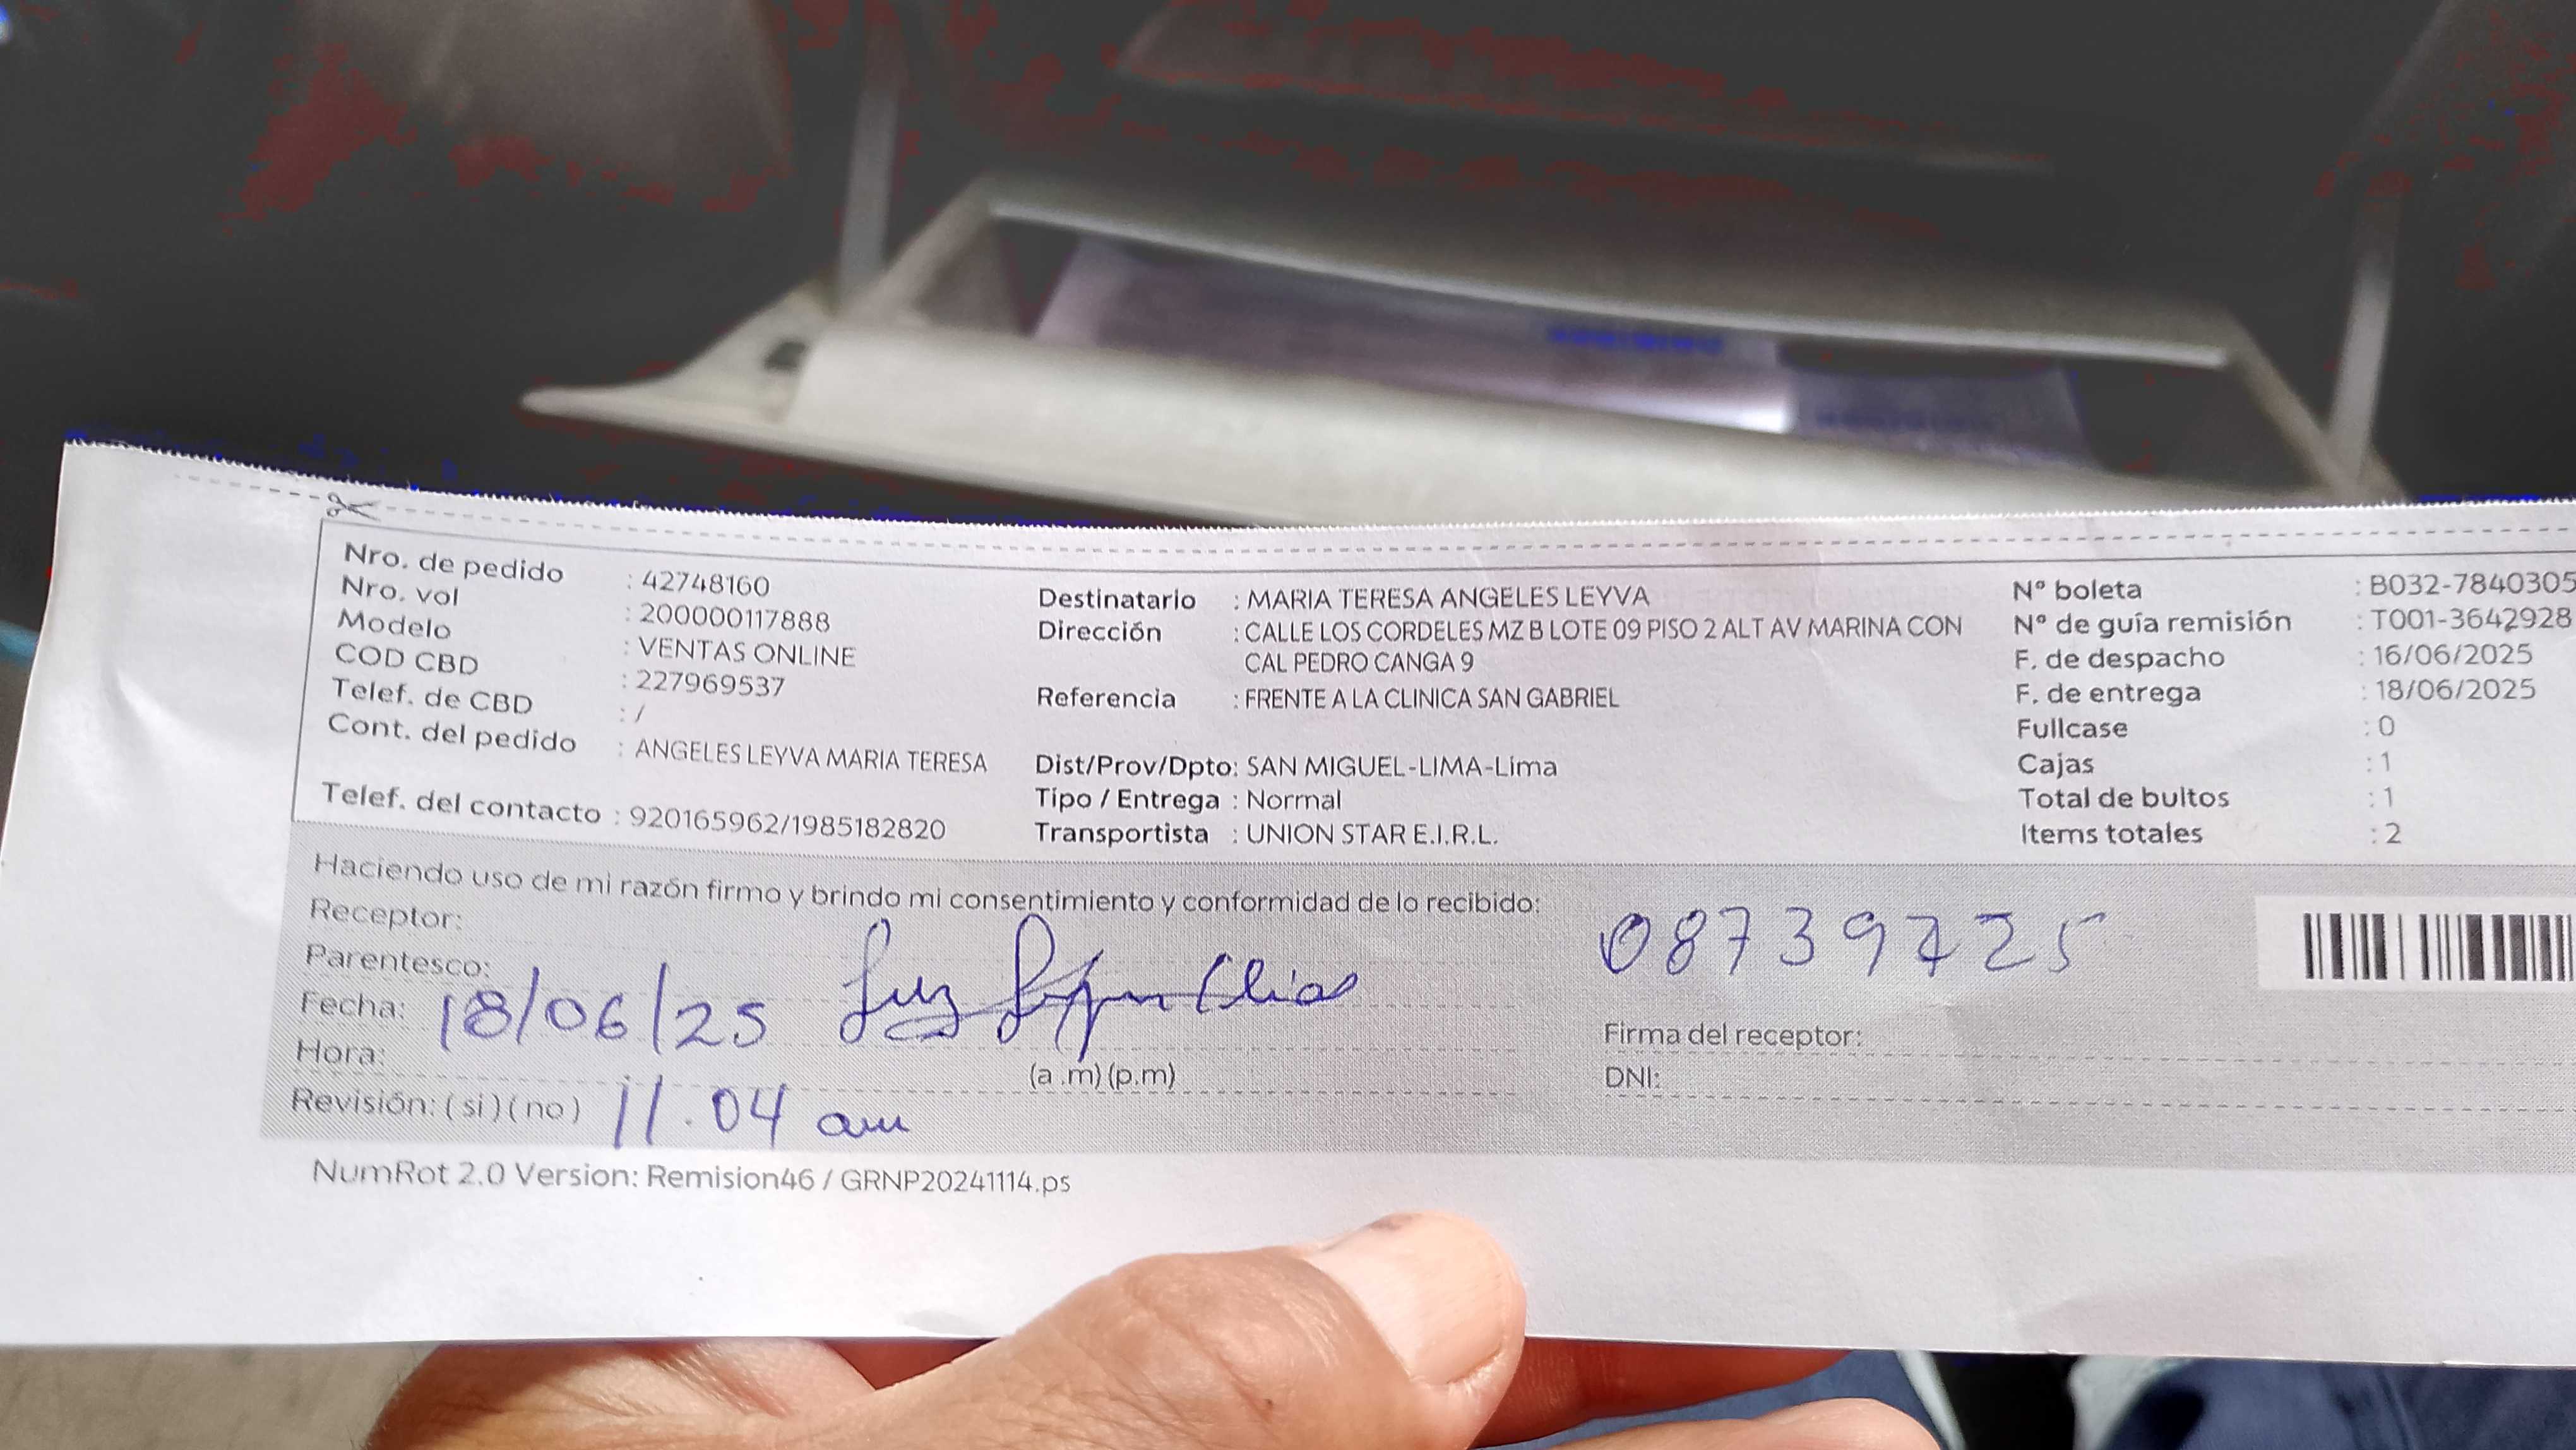 Nro. de pedido : 42748160
Nro. vol : 200000117888
Modelo : VENTAS ONLINE
COD CBD : 227969537
Telef. de CBD : /
Cont. del pedido : ANGELES LEYVA MARIA TERESA
Telef. del contacto : 920165962/1985182820
Destinatario : MARIA TERESA ANGELES LEYVA
Dirección : CALLE LOS CORDELES MZ B LOTE 09 PISO 2 ALT AV MARINA CON
CAL PEDRO CANGA 9
Referencia : FRENTE A LA CLINICA SAN GABRIEL
Dist/Prov/Dpto: SAN MIGUEL-LIMA-Lima
Tipo / Entrega : Normal
Transportista : UNION STAR E.I.R.L.
Nº boleta : B032-7840305
Nº de guía remisión : T001-3642928
F. de despacho : 16/06/2025
F. de entrega : 18/06/2025
Fullcase : 0
Cajas : 1
Total de bultos : 1
Items totales : 2
Haciendo uso de mi razón firmo y brindo mi consentimiento y conformidad de lo recibido:
Receptor:
Parentesco:
Fecha: 18/06/25 Luz Elias
Hora: (a .m) (p.m)
Revisión: ( si ) ( no ) 11.04 am
08739725
Firma del receptor:
DNI:
NumRot 2.0 Version: Remision46 / GRNP20241114.ps